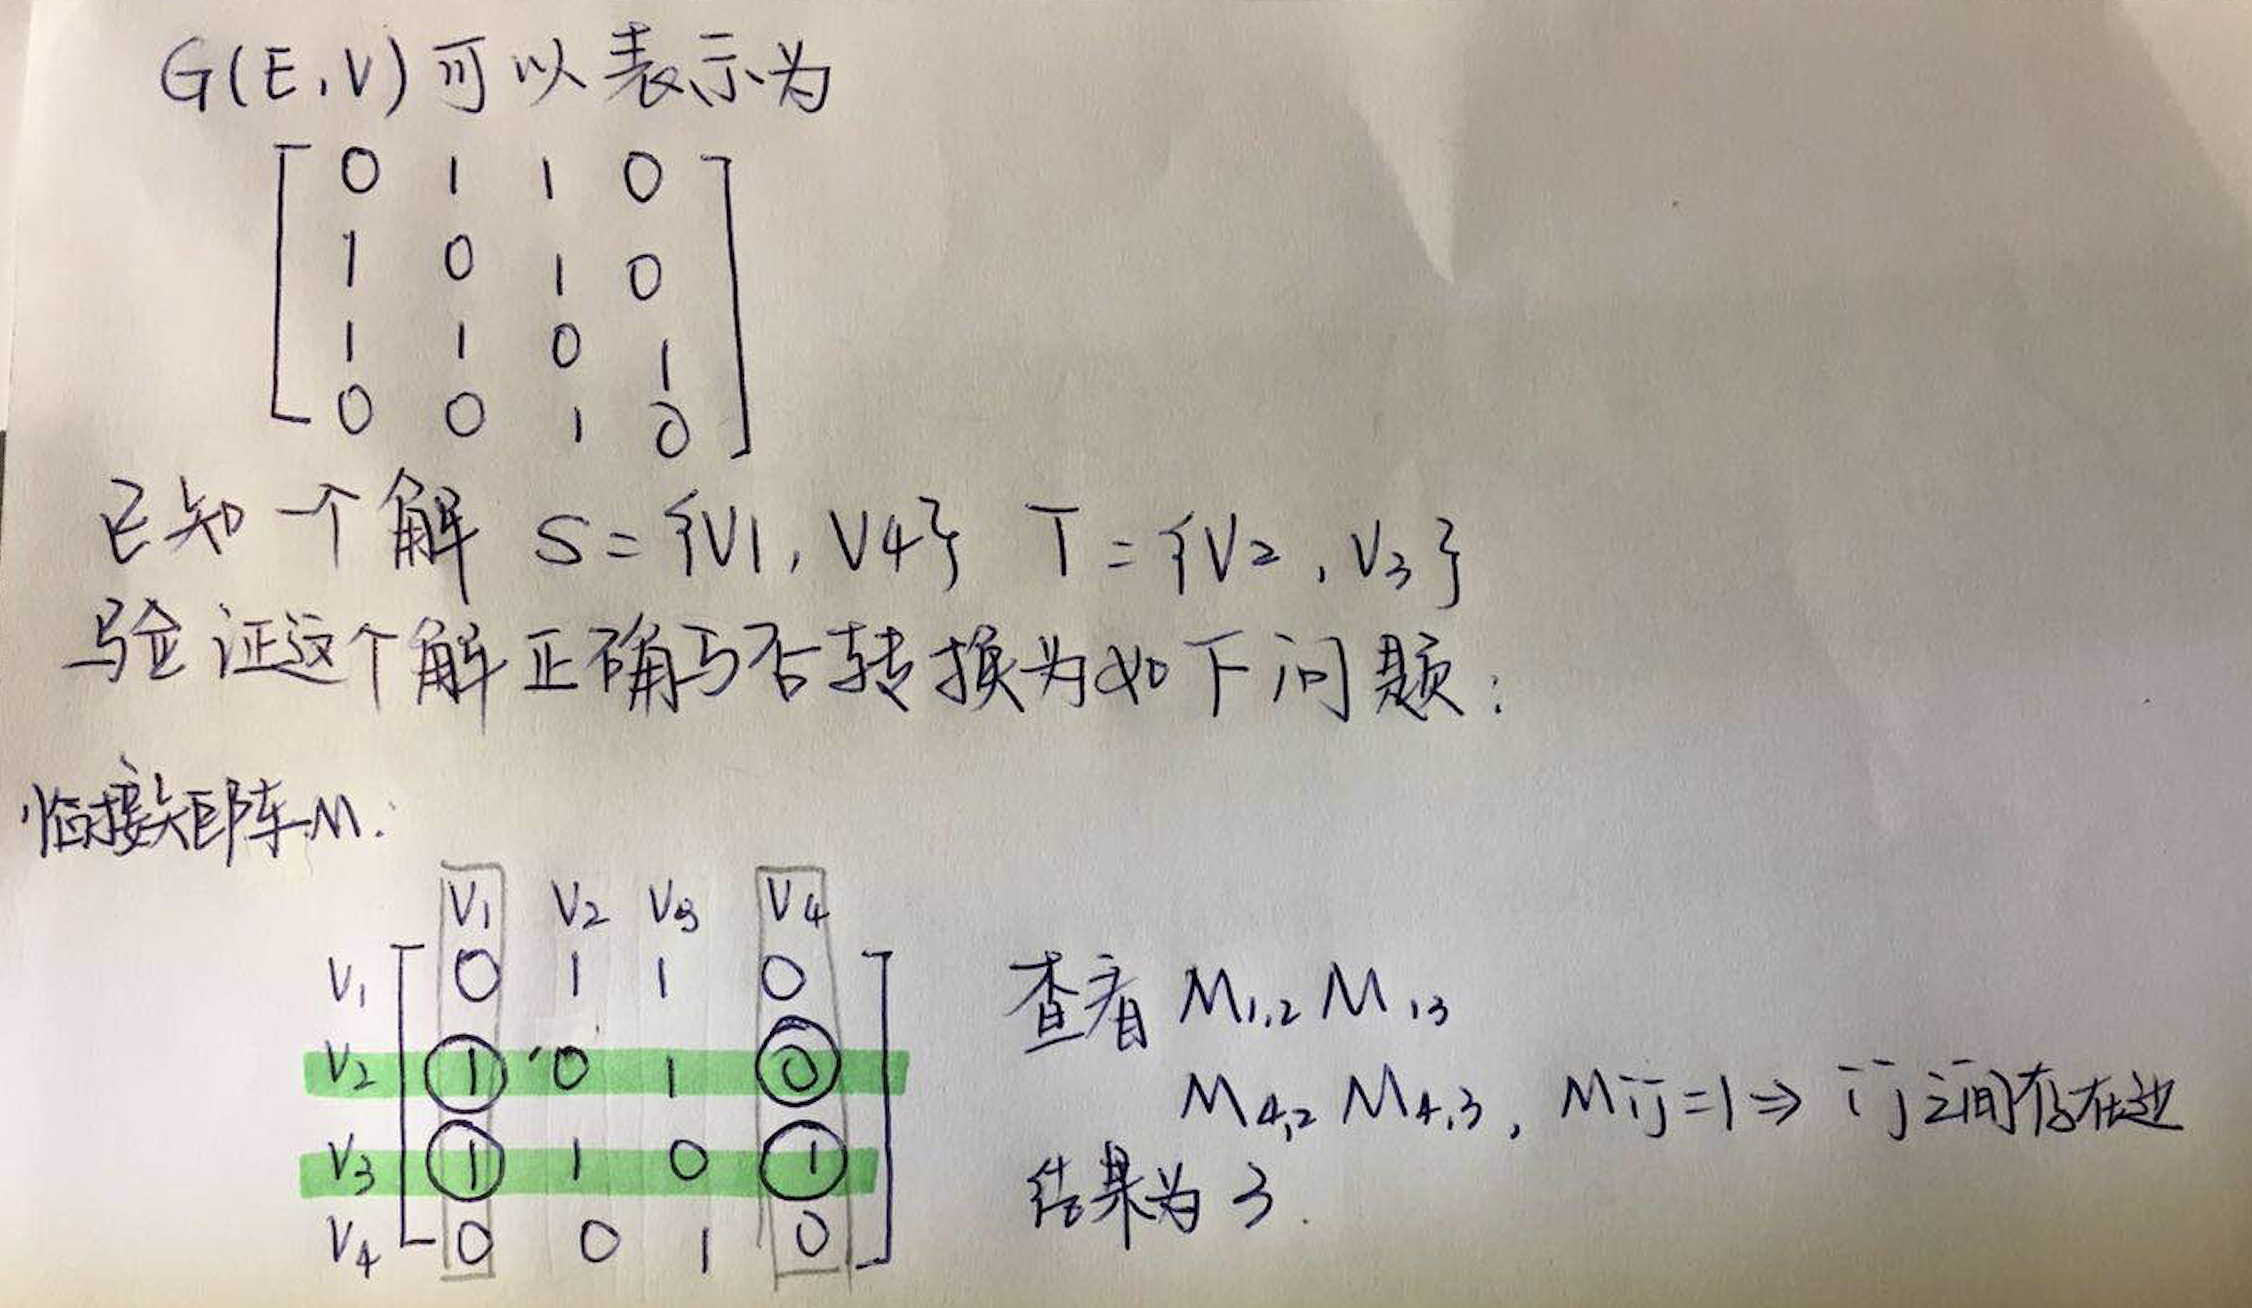 G(E,V)可以表示为
0 1 1 0
1 0 1 0
1 1 0 1
0 0 1 0
已知一个解 S={V1,V4} T={V2,V3}
验证这个解正确与否转换为如下问题:
临接矩阵M:
V1 V2 V3 V4
V1 0 1 1 0
V2 1 0 1 0
V3 1 1 0 1
V4 0 0 1 0
查看 M1,2 M13
M4,2 M4,3, Mij=1⇒ ij之间存在边
结果为3.